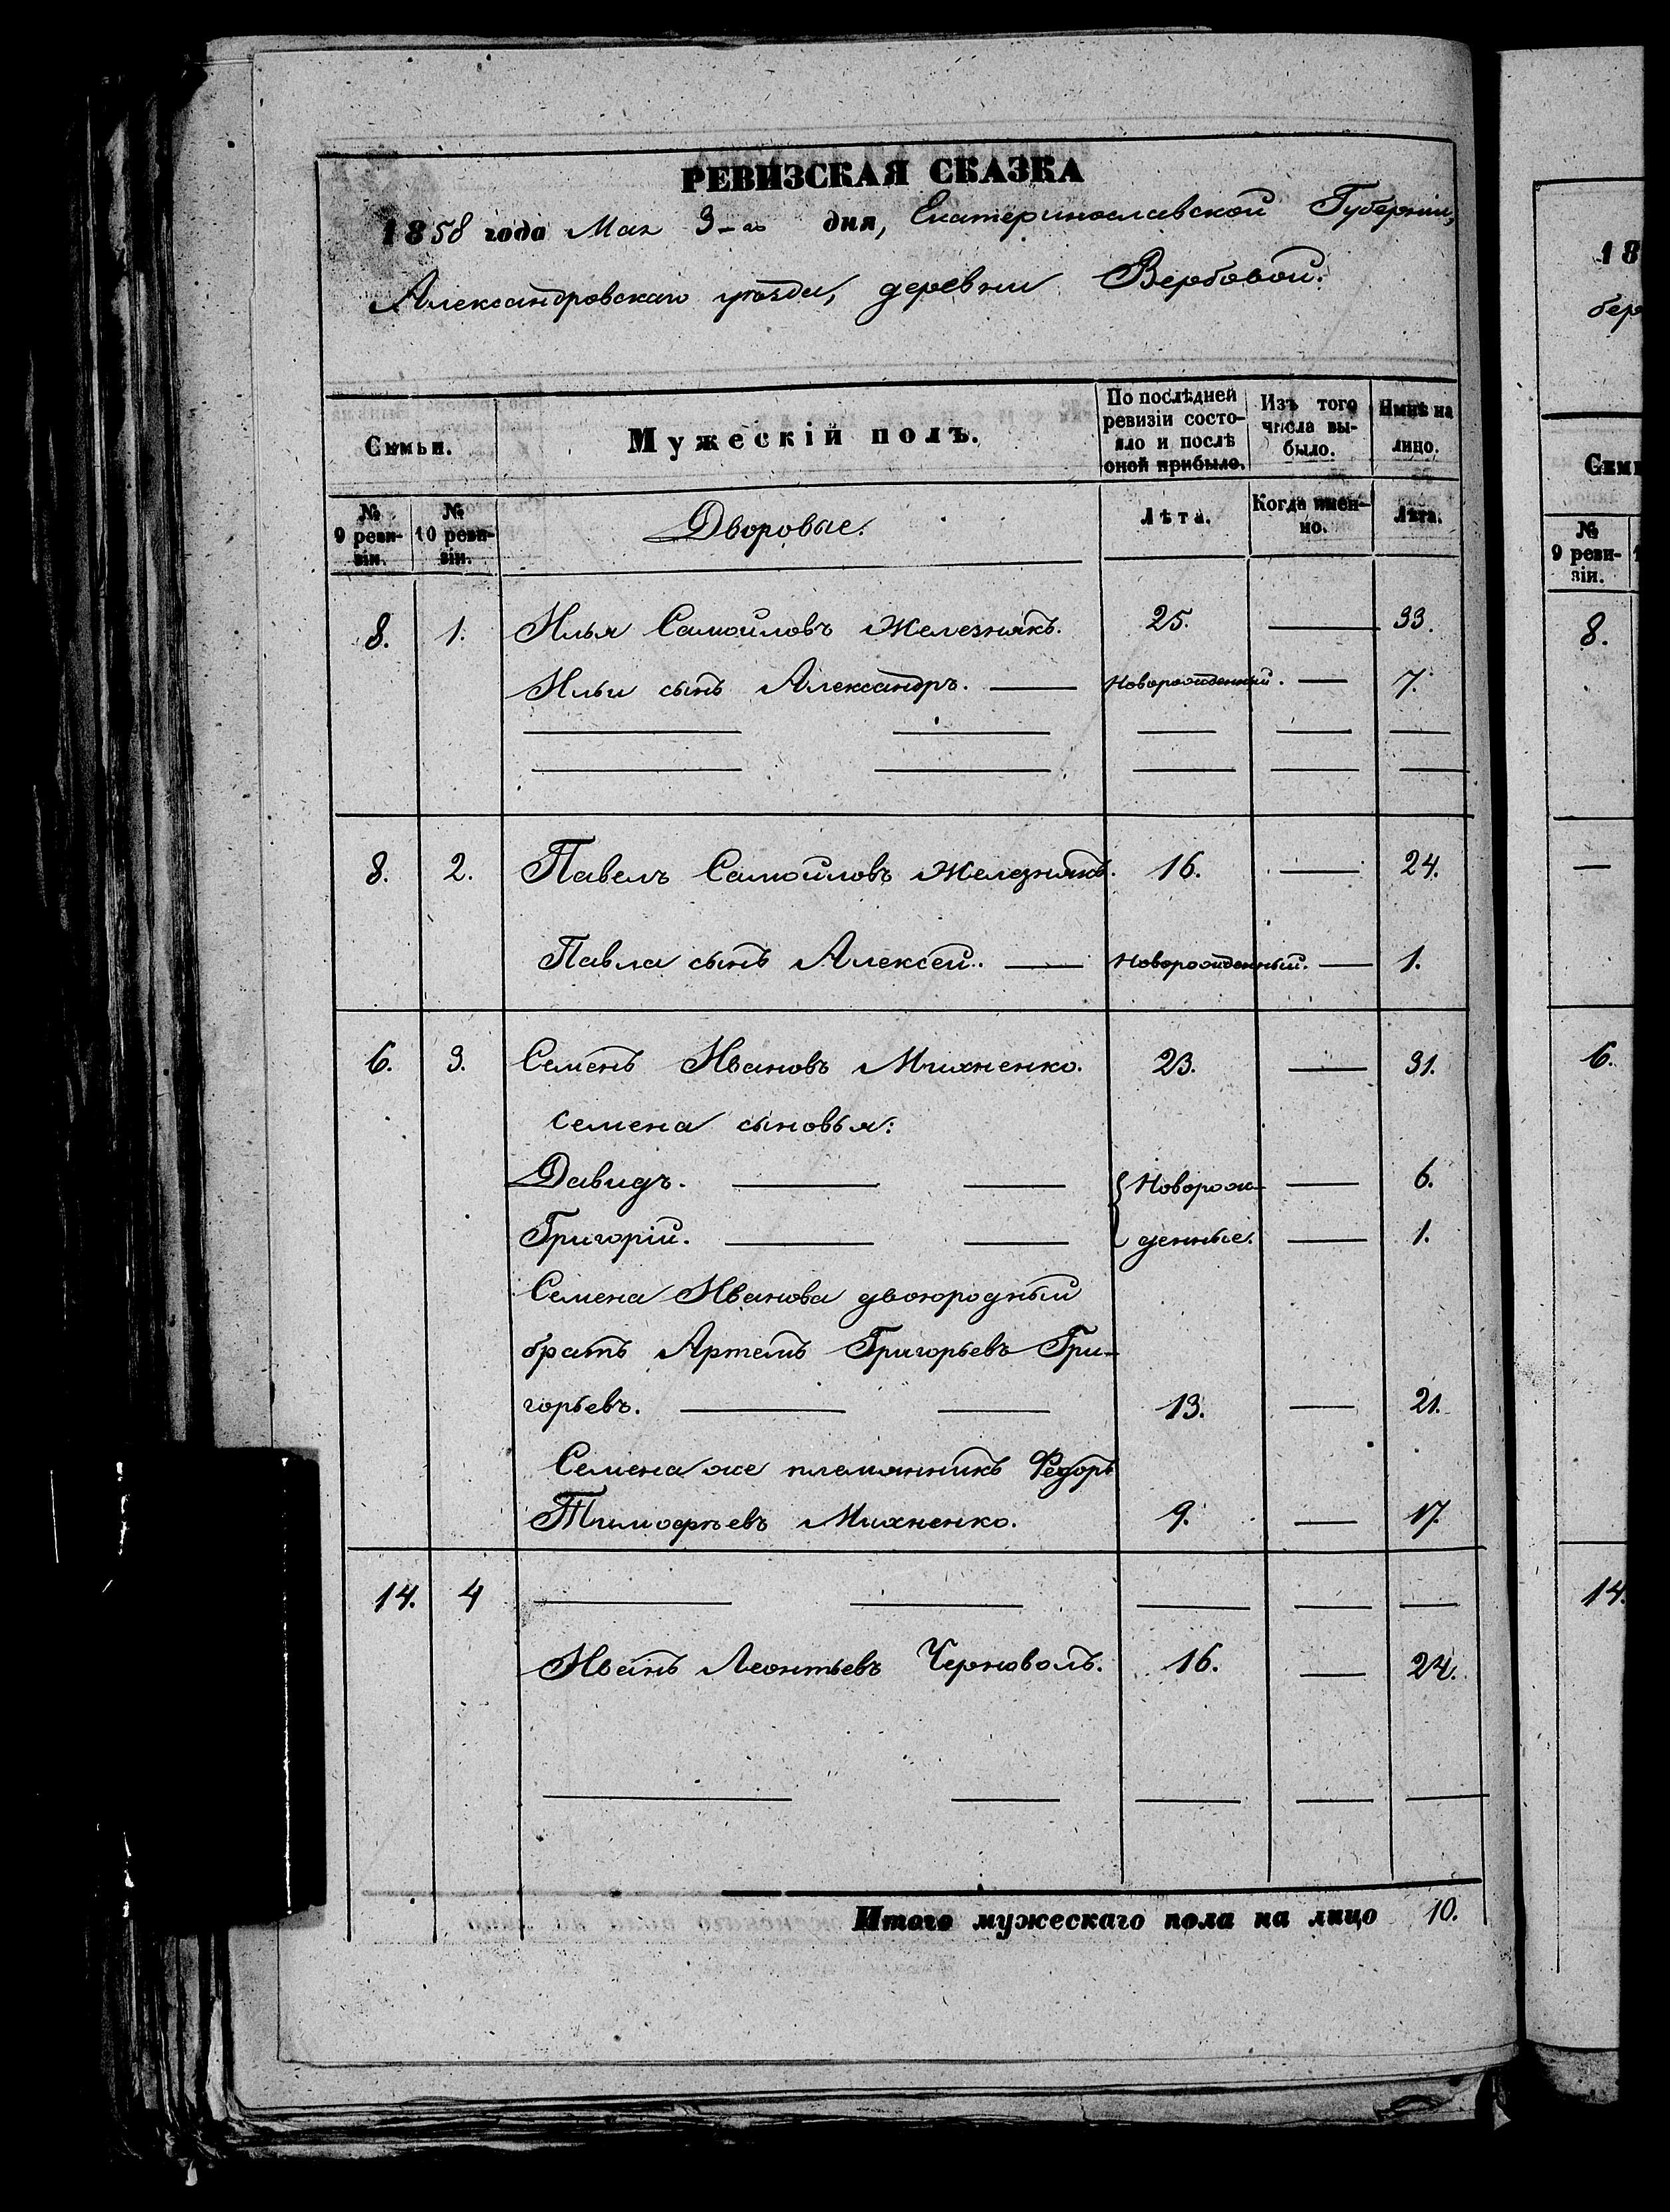 РЕВИЗСКАЯ СКАЗКА
1858 года Мая 3-го дня, Екатеринославской Губерніи,
Александровскаго уѣзда, деревни Вербовой.
Семьи. Мужескій полъ. По послѣдней ревизіи состояло и послѣ оной прибыло. Изъ того числа выбыло. Нынѣ на лицо.
№ 9 ревизіи. № 10 ревизіи. Дворовые. Лѣта. Когда именно. Лѣта.
8. 1. Илья Самойловъ Железнякъ. 25. — 33.
Ильи сынъ Александръ. — Новорожденный. — 7.
8. 2. Павелъ Самойловъ Железнякъ. 16. — 24.
Павла сынъ Алексей. — Новорожденный. — 1.
6. 3. Семенъ Ивановъ Михненко. 23. — 31.
семена сыновья:
Давидъ. — — Новорож- — 6.
Григорій. — — денные. — 1.
Семена Иванова двоюродный
братъ Артемъ Григорьевъ Гри-
горьевъ. — — 13. — 21.
Семена же племянникъ Федоръ
Тимофѣевъ Михненко. 9. — 17.
14. 4 — — — — —
Иванъ Леонтьевъ Черноволъ. 16. — 24.
Итого мужескаго пола на лицо 10.
18
бер
Семь
№
9 реви-
зіи.
8.
6.
14.